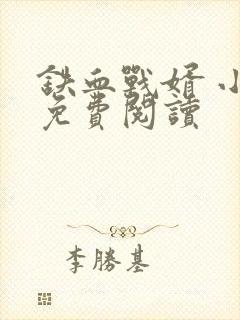 鉄血戰婿 小
免費閱讀
李勝基